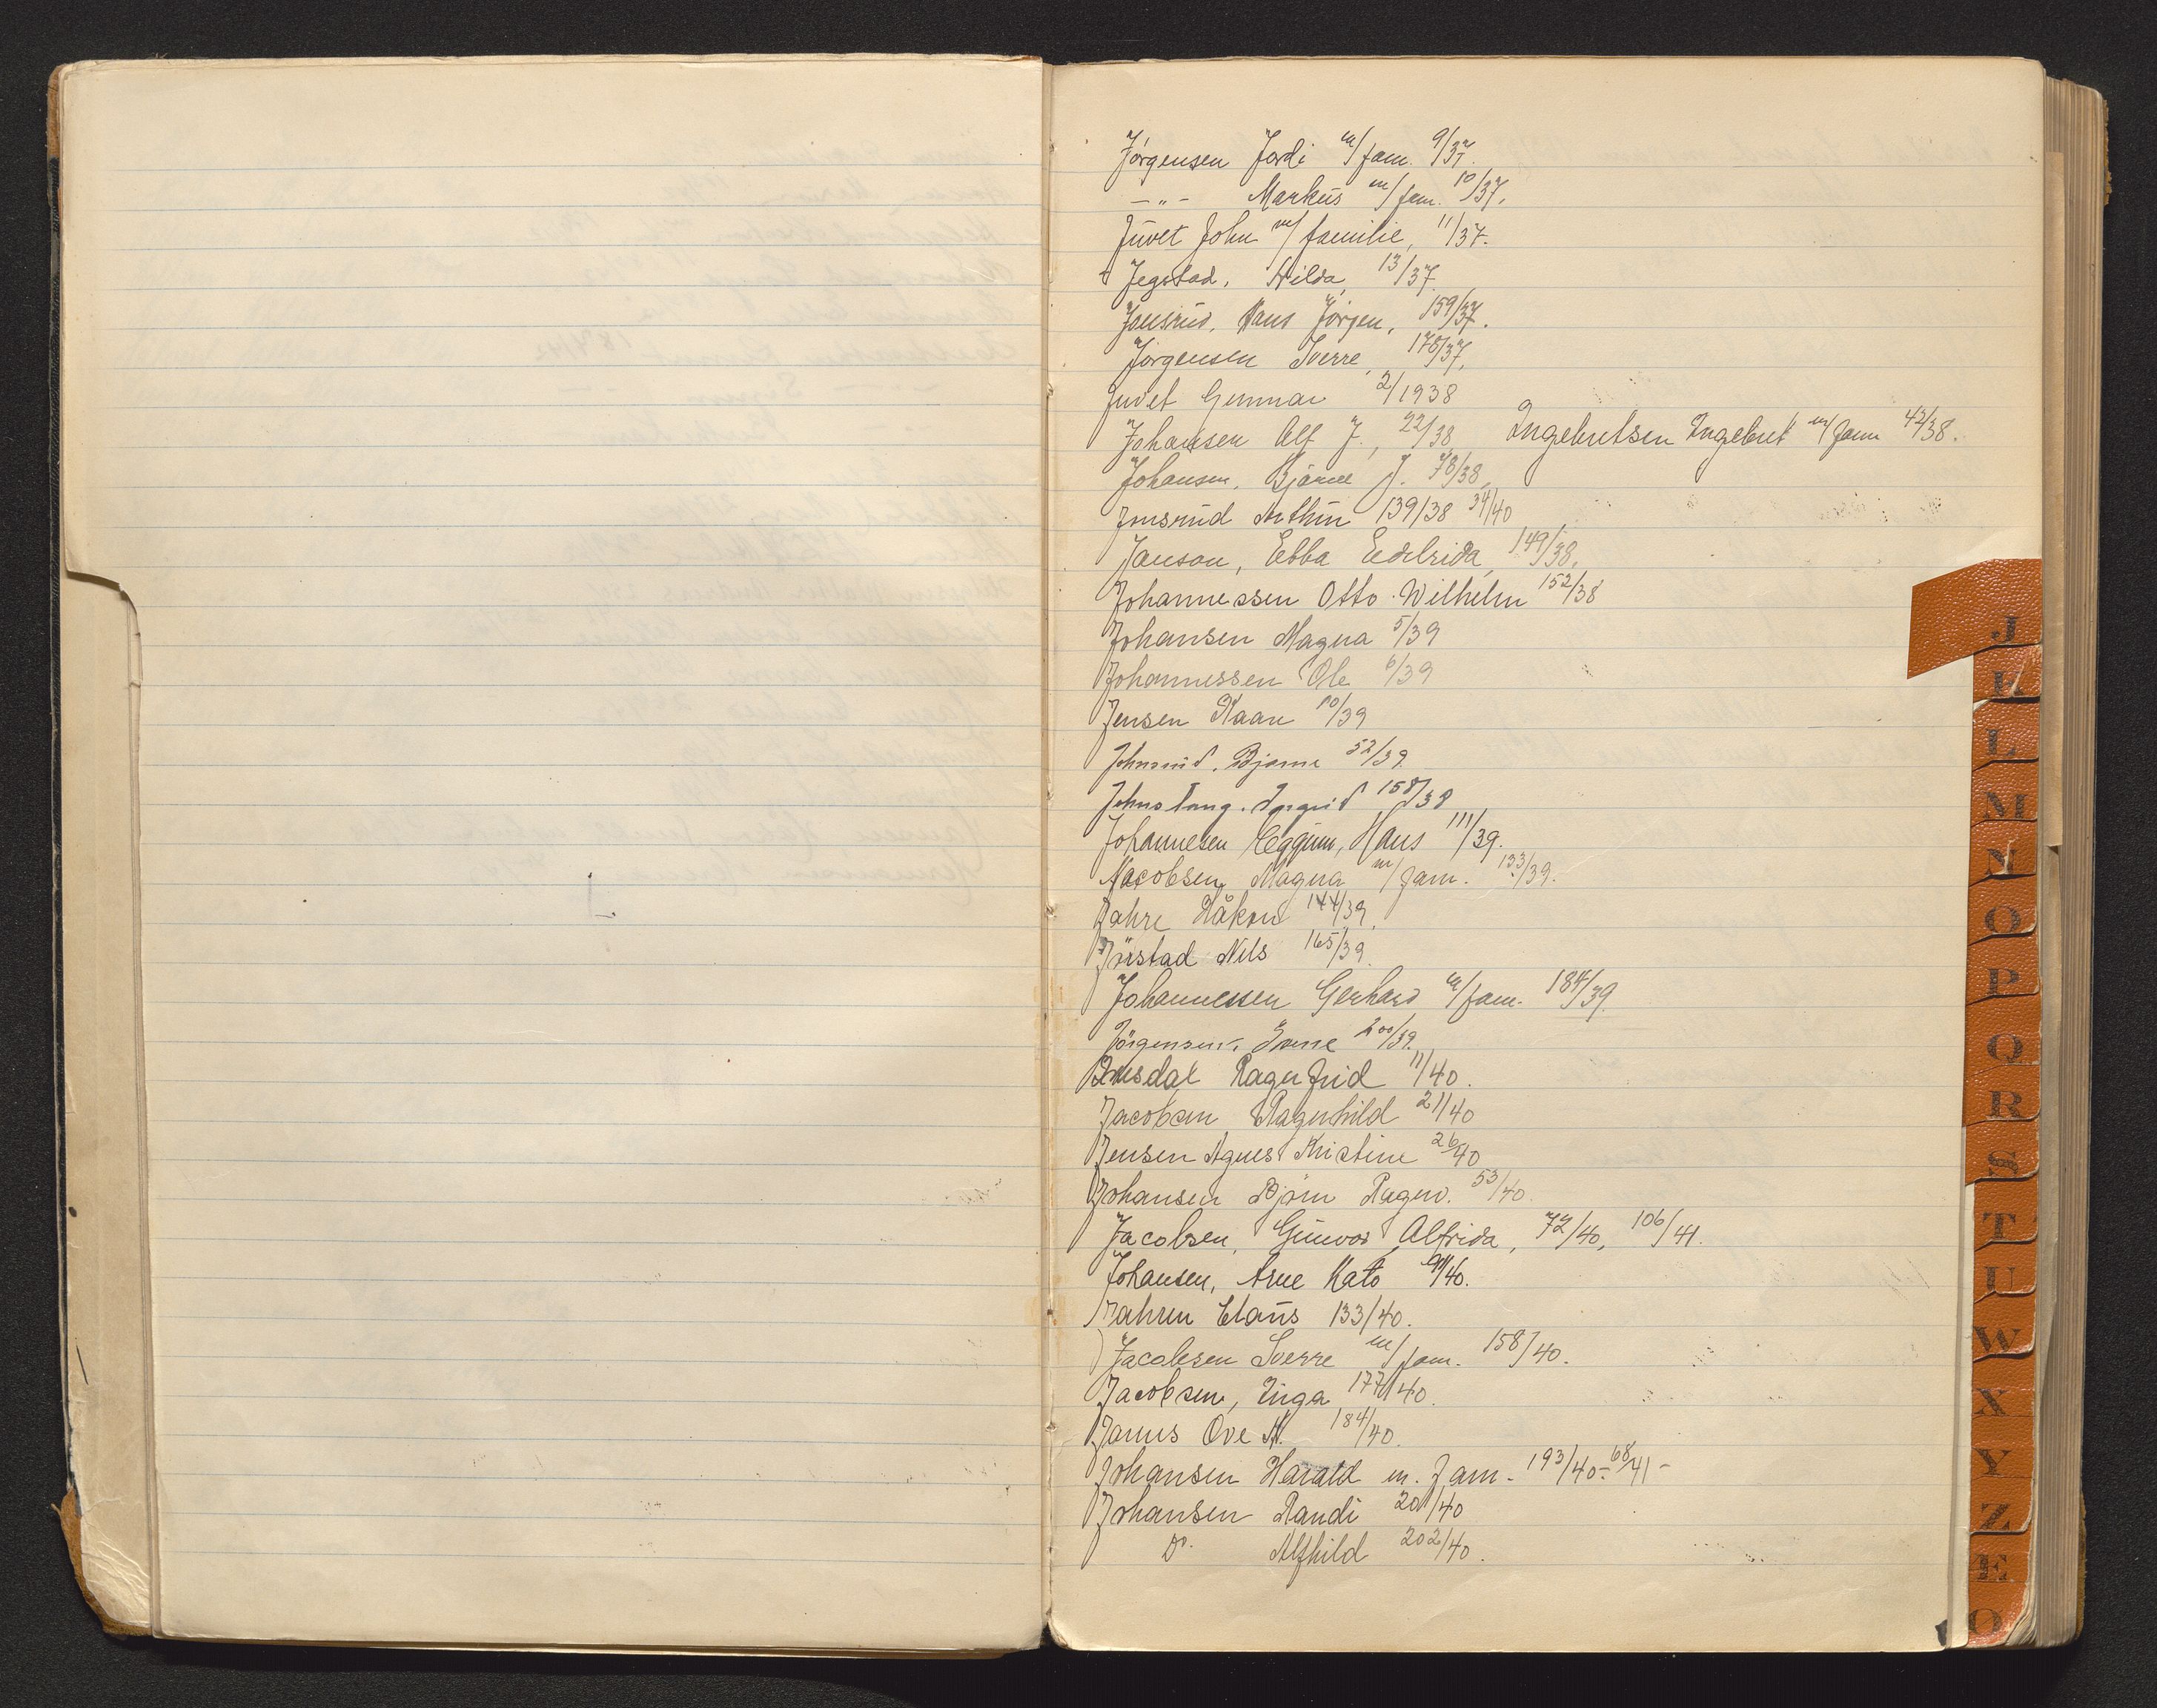 Jørgensen Jordi m/fam. 9/37.
-"- Markus m/fam. 10/37.
Juvet John m/familie, 11/37.
Jegstad, Hilda, 13/37.
Jonsrud, Hans Jørgen, 159/37.
Jørgensen Sverre, 178/37.
Juvet Gunnar 2/1938
Johansen Alf J., 22/38 Ingebretsen Ingebret m/fam 42/38.
Johansen, Bjarne J. 78/38,
Jonsrud Arthur 139/38 34/40
Janson, Ebba Edelrida, 149/38.
Johannessen Otto Wilhelm 152/38
Johansen Magna 5/39
Johannessen Ole 6/39
Jensen Kaare 10/39
Johnsrud, Bjarne 52/39
Johnstang. Ingrid 158/38
Johannesen Eggum, Hans 111/39.
Jacobsen Magna m/fam. 133/39.
Jahre Håkon 144/39.
Jørstad Nils 165/39.
Johannessen Gerhard m/fam. 184/39.
Jørgensen, 200/39.
Ragnfrid 11/40.
Jacobsen Ragnhild 21/40
Jensen Agnes Kristine 26/40
Johansen Bjørn Ragnv. 53/40.
Jacobsen, Gunvor Alfrida, 72/40, 106/41.
Johansen, Arne Kato 91/40.
Jahren Claus 133/40.
Jacobsen Sverre m/fam. 158/40.
Jacobsen, Inga 177/40.
Janns Ove N. 184/40.
Johansen Harald m. fam. - 193/40.- 68/41 -
Johansen Randi 201/40
Do. Alfhild 202/40.
J
K
L
M
N
O
P
Q
R
S
T
U
W
X
Y
Z
Æ
Ø